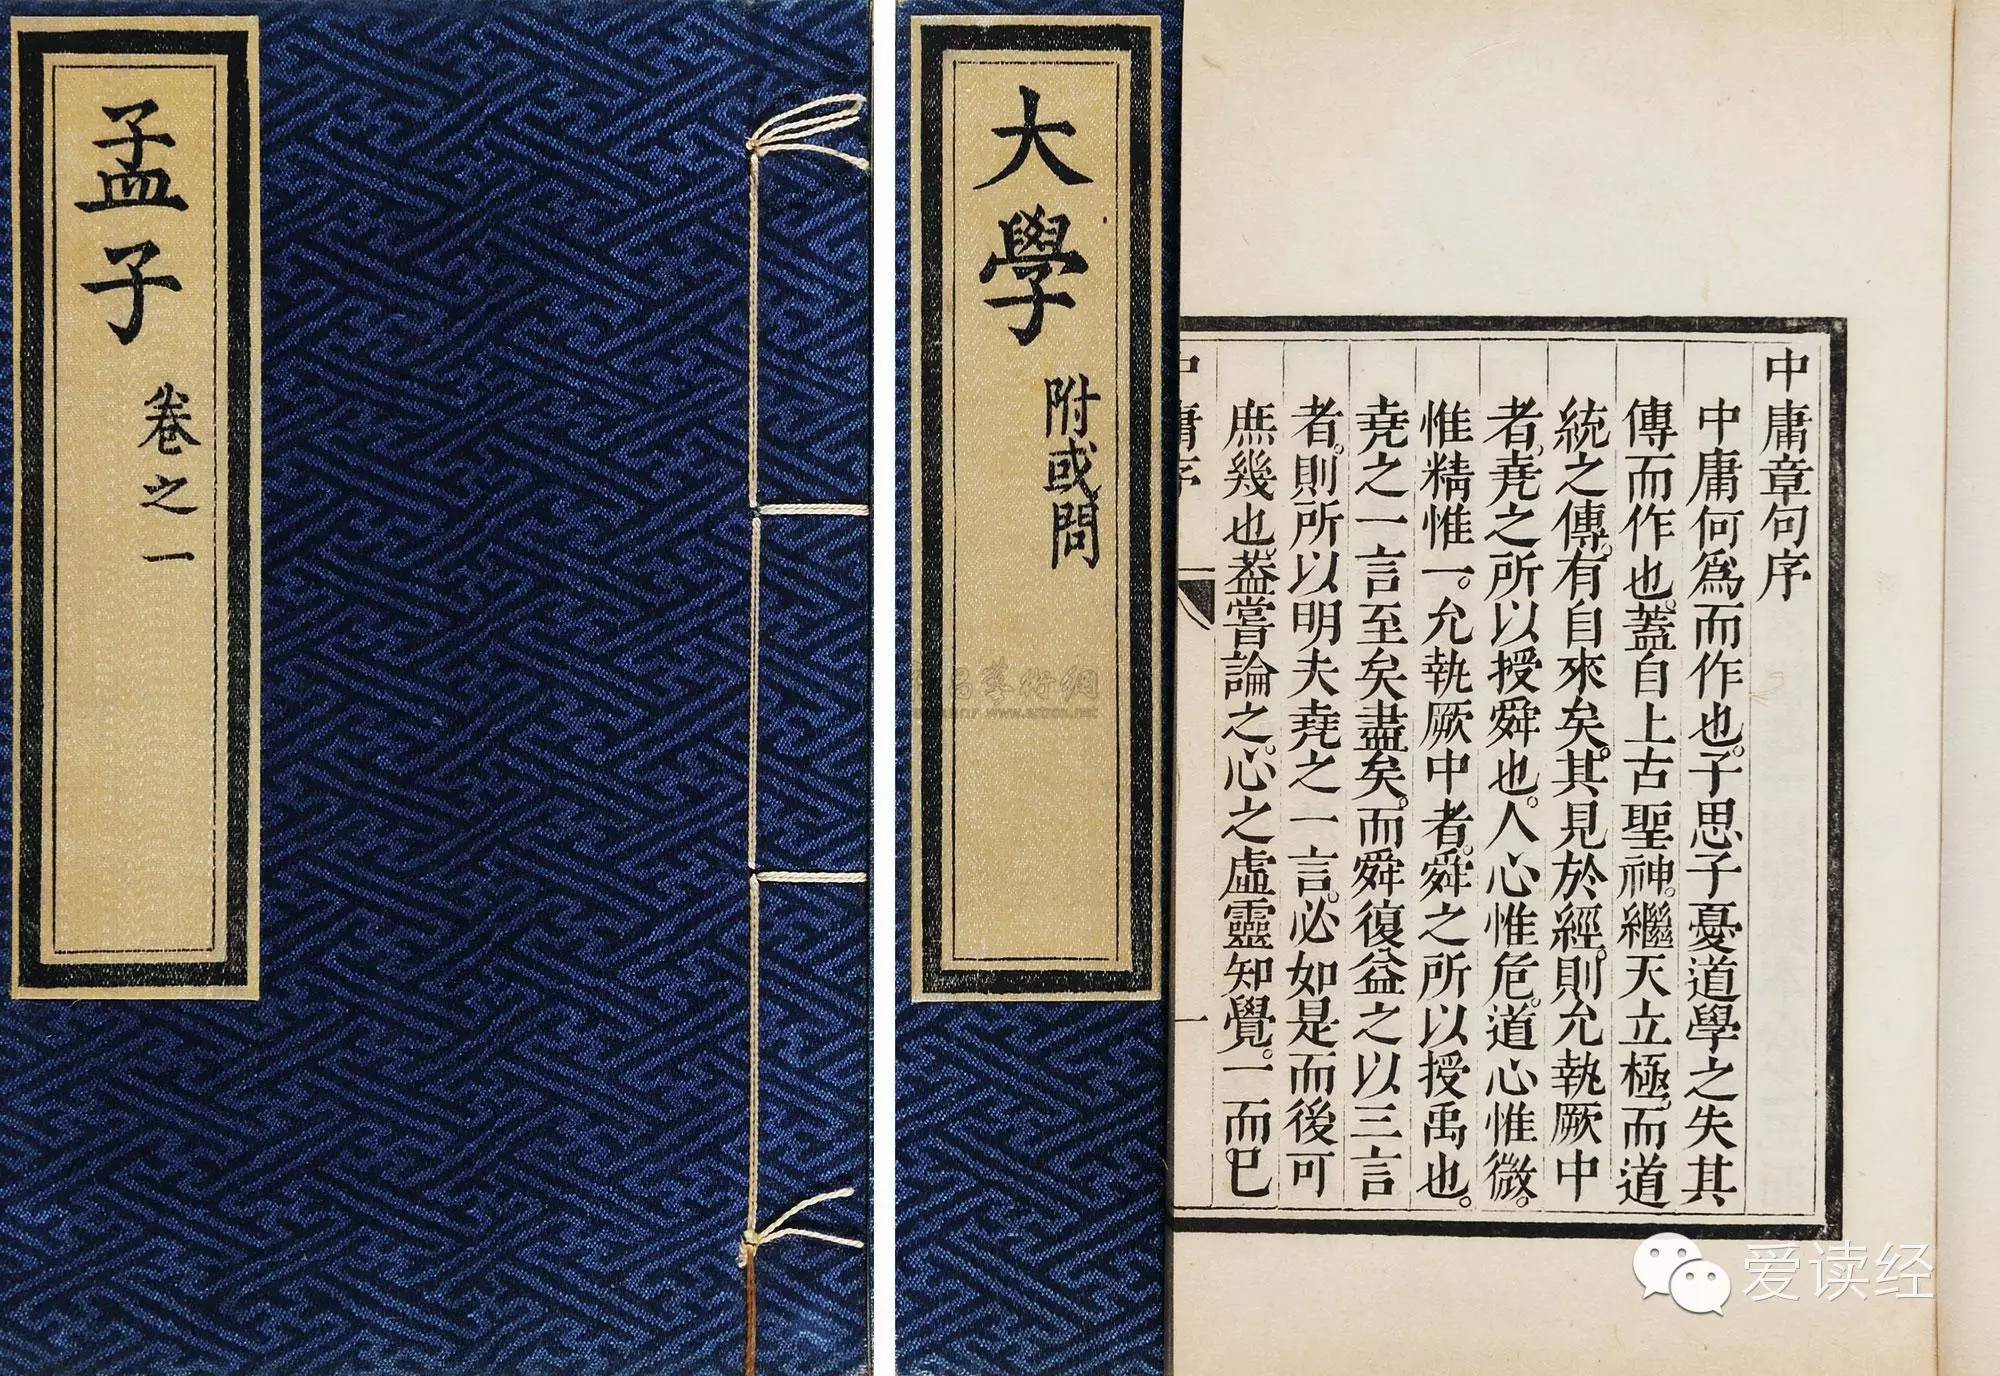 孟子
卷之一
大學
附或問
中庸章句序
中庸何爲而作也。子思子憂道學之失其
傳而作也。蓋自上古聖神。繼天立極。而道
統之傳。有自來矣。其見於經。則允執厥中
者。堯之所以授舜也。人心惟危。道心惟微。
惟精惟一。允執厥中者。舜之所以授禹也。
堯之一言至矣盡矣。而舜復益之以三言
者。則所以明夫堯之一言。必如是而後可
庶幾也。蓋嘗論之。心之虛靈知覺。一而已
中庸序
一
藝術網
www.artron.net
爱读经